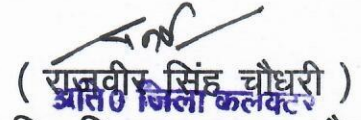 ( राजवीर सिंह चौधरी )
अति0 जिला कलक्टर